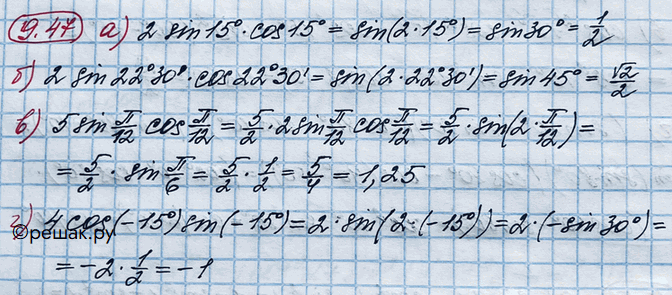 9.47 а) 2 sin15°·cos15° = sin(2·15°) = sin30° = 1/2
б) 2 sin22°30'·cos22°30' = sin(2·22°30') = sin45° = √2/2
в) 5 sin π/12 cos π/12 = 5/2 · 2sin π/12 cos π/12 = 5/2 · sin(2·π/12) =
= 5/2 · sin π/6 = 5/2 · 1/2 = 5/4 = 1,25
г) 4 cos(-15°) sin(-15°) = 2·sin(2·(-15°)) = 2·(-sin30°) =
©решак.ру
= -2 · 1/2 = -1